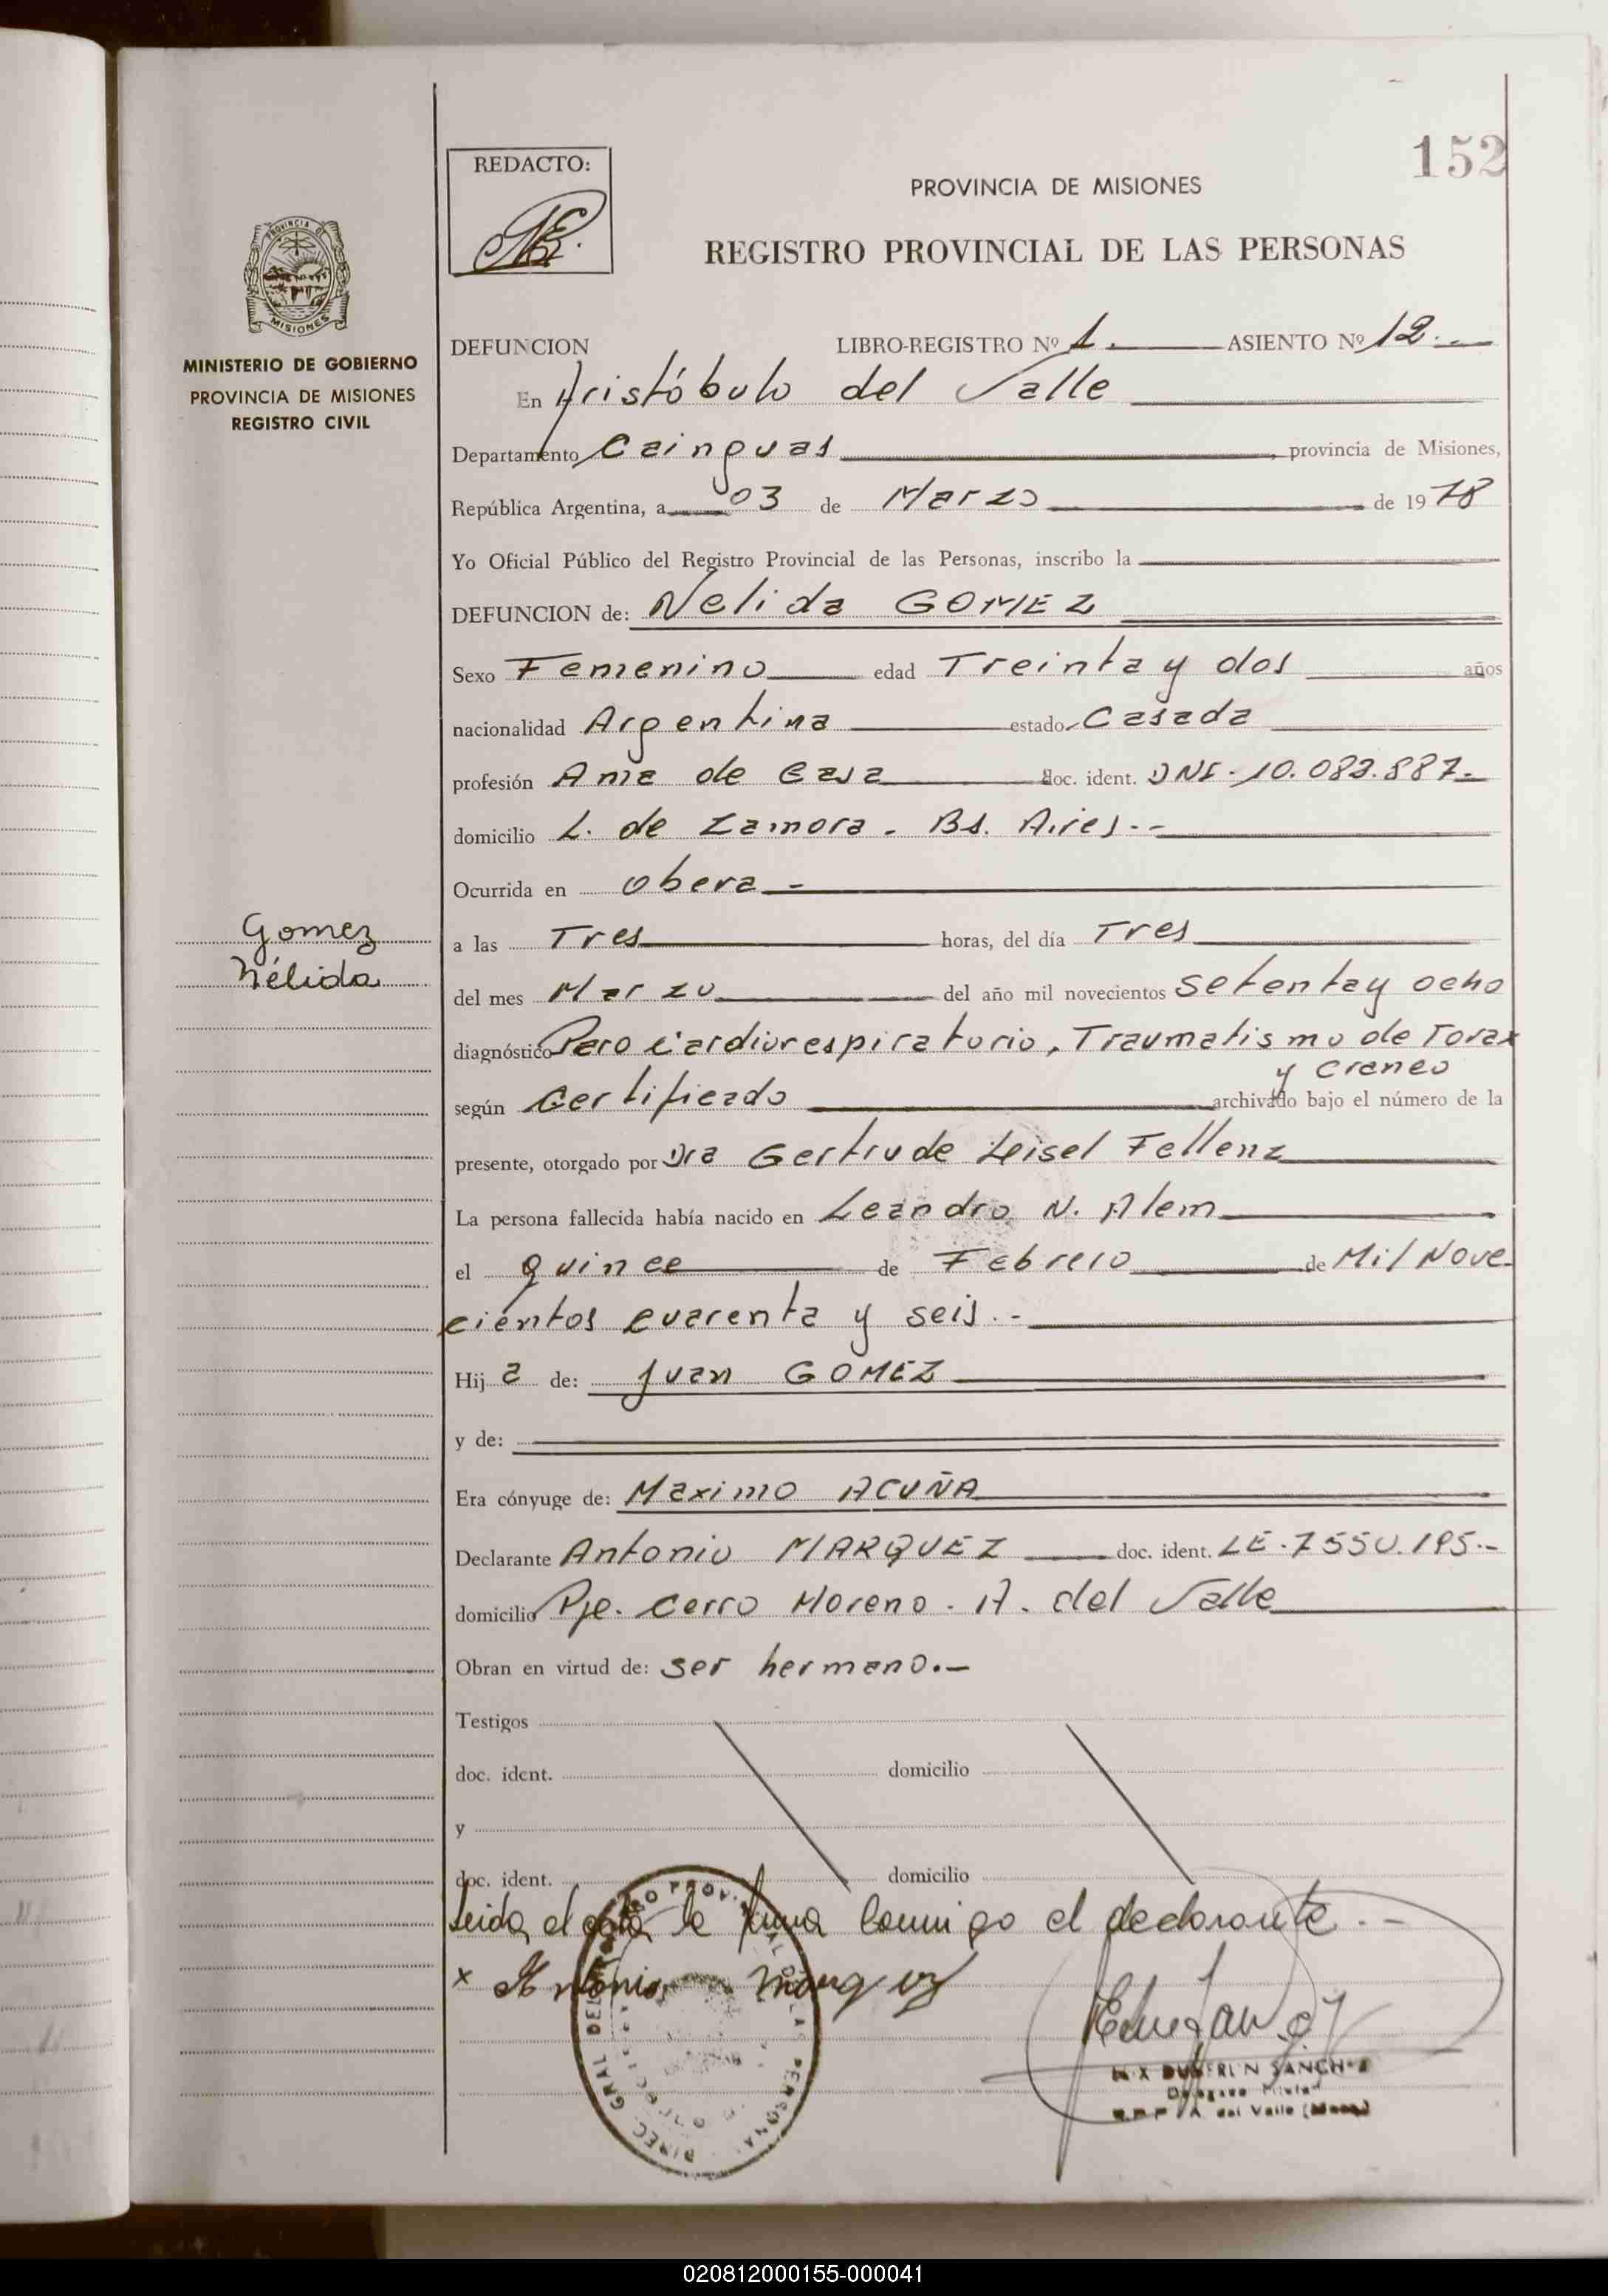 152
REDACTO:
PROVINCIA DE MISIONES
REGISTRO PROVINCIAL DE LAS PERSONAS
PROVINCIA DE
MISIONES
MINISTERIO DE GOBIERNO
PROVINCIA DE MISIONES
REGISTRO CIVIL
DEFUNCION LIBRO-REGISTRO Nº 1. ASIENTO Nº 12.-
En Aristóbulo del Valle
Departamento Cainguas, provincia de Misiones,
República Argentina, a 03 de Marzo de 1978
Yo Oficial Público del Registro Provincial de las Personas, inscribo la
DEFUNCION de: Nelida GOMEZ
Sexo Femenino edad Treinta y dos años
nacionalidad Argentina estado Casada
profesión Ama de Casa doc. ident. DNI-10.083.887-
domicilio L. de Zamora. Bs. Aires.-
Ocurrida en Obera-
Gomez
Nélida
a las Tres horas, del día Tres
del mes Marzo del año mil novecientos setenta y ocho
diagnóstico Paro Cardiorespiratorio, Traumatismo de Torax
y Craneo
según Certificado archivado bajo el número de la
presente, otorgado por Dra Gertrude Leisel Fellenz
La persona fallecida había nacido en Leandro N. Alem
el quince de Febrero de Mil Nove-
cientos cuarenta y seis.-
Hij a de: Juan GOMEZ
y de:
Era cónyuge de: Maximo ACUÑA
Declarante Antonio MARQUEZ doc. ident. LE.7550.195.-
domicilio Pje. Cerro Moreno. A. del Valle
Obran en virtud de: ser hermano.-
Testigos
doc. ident. domicilio
y
doc. ident. domicilio
Leida el acta la firma conmigo el declarante.-
x Antonio Marquez
SANCHEZ
A. del Valle
020812000155-000041